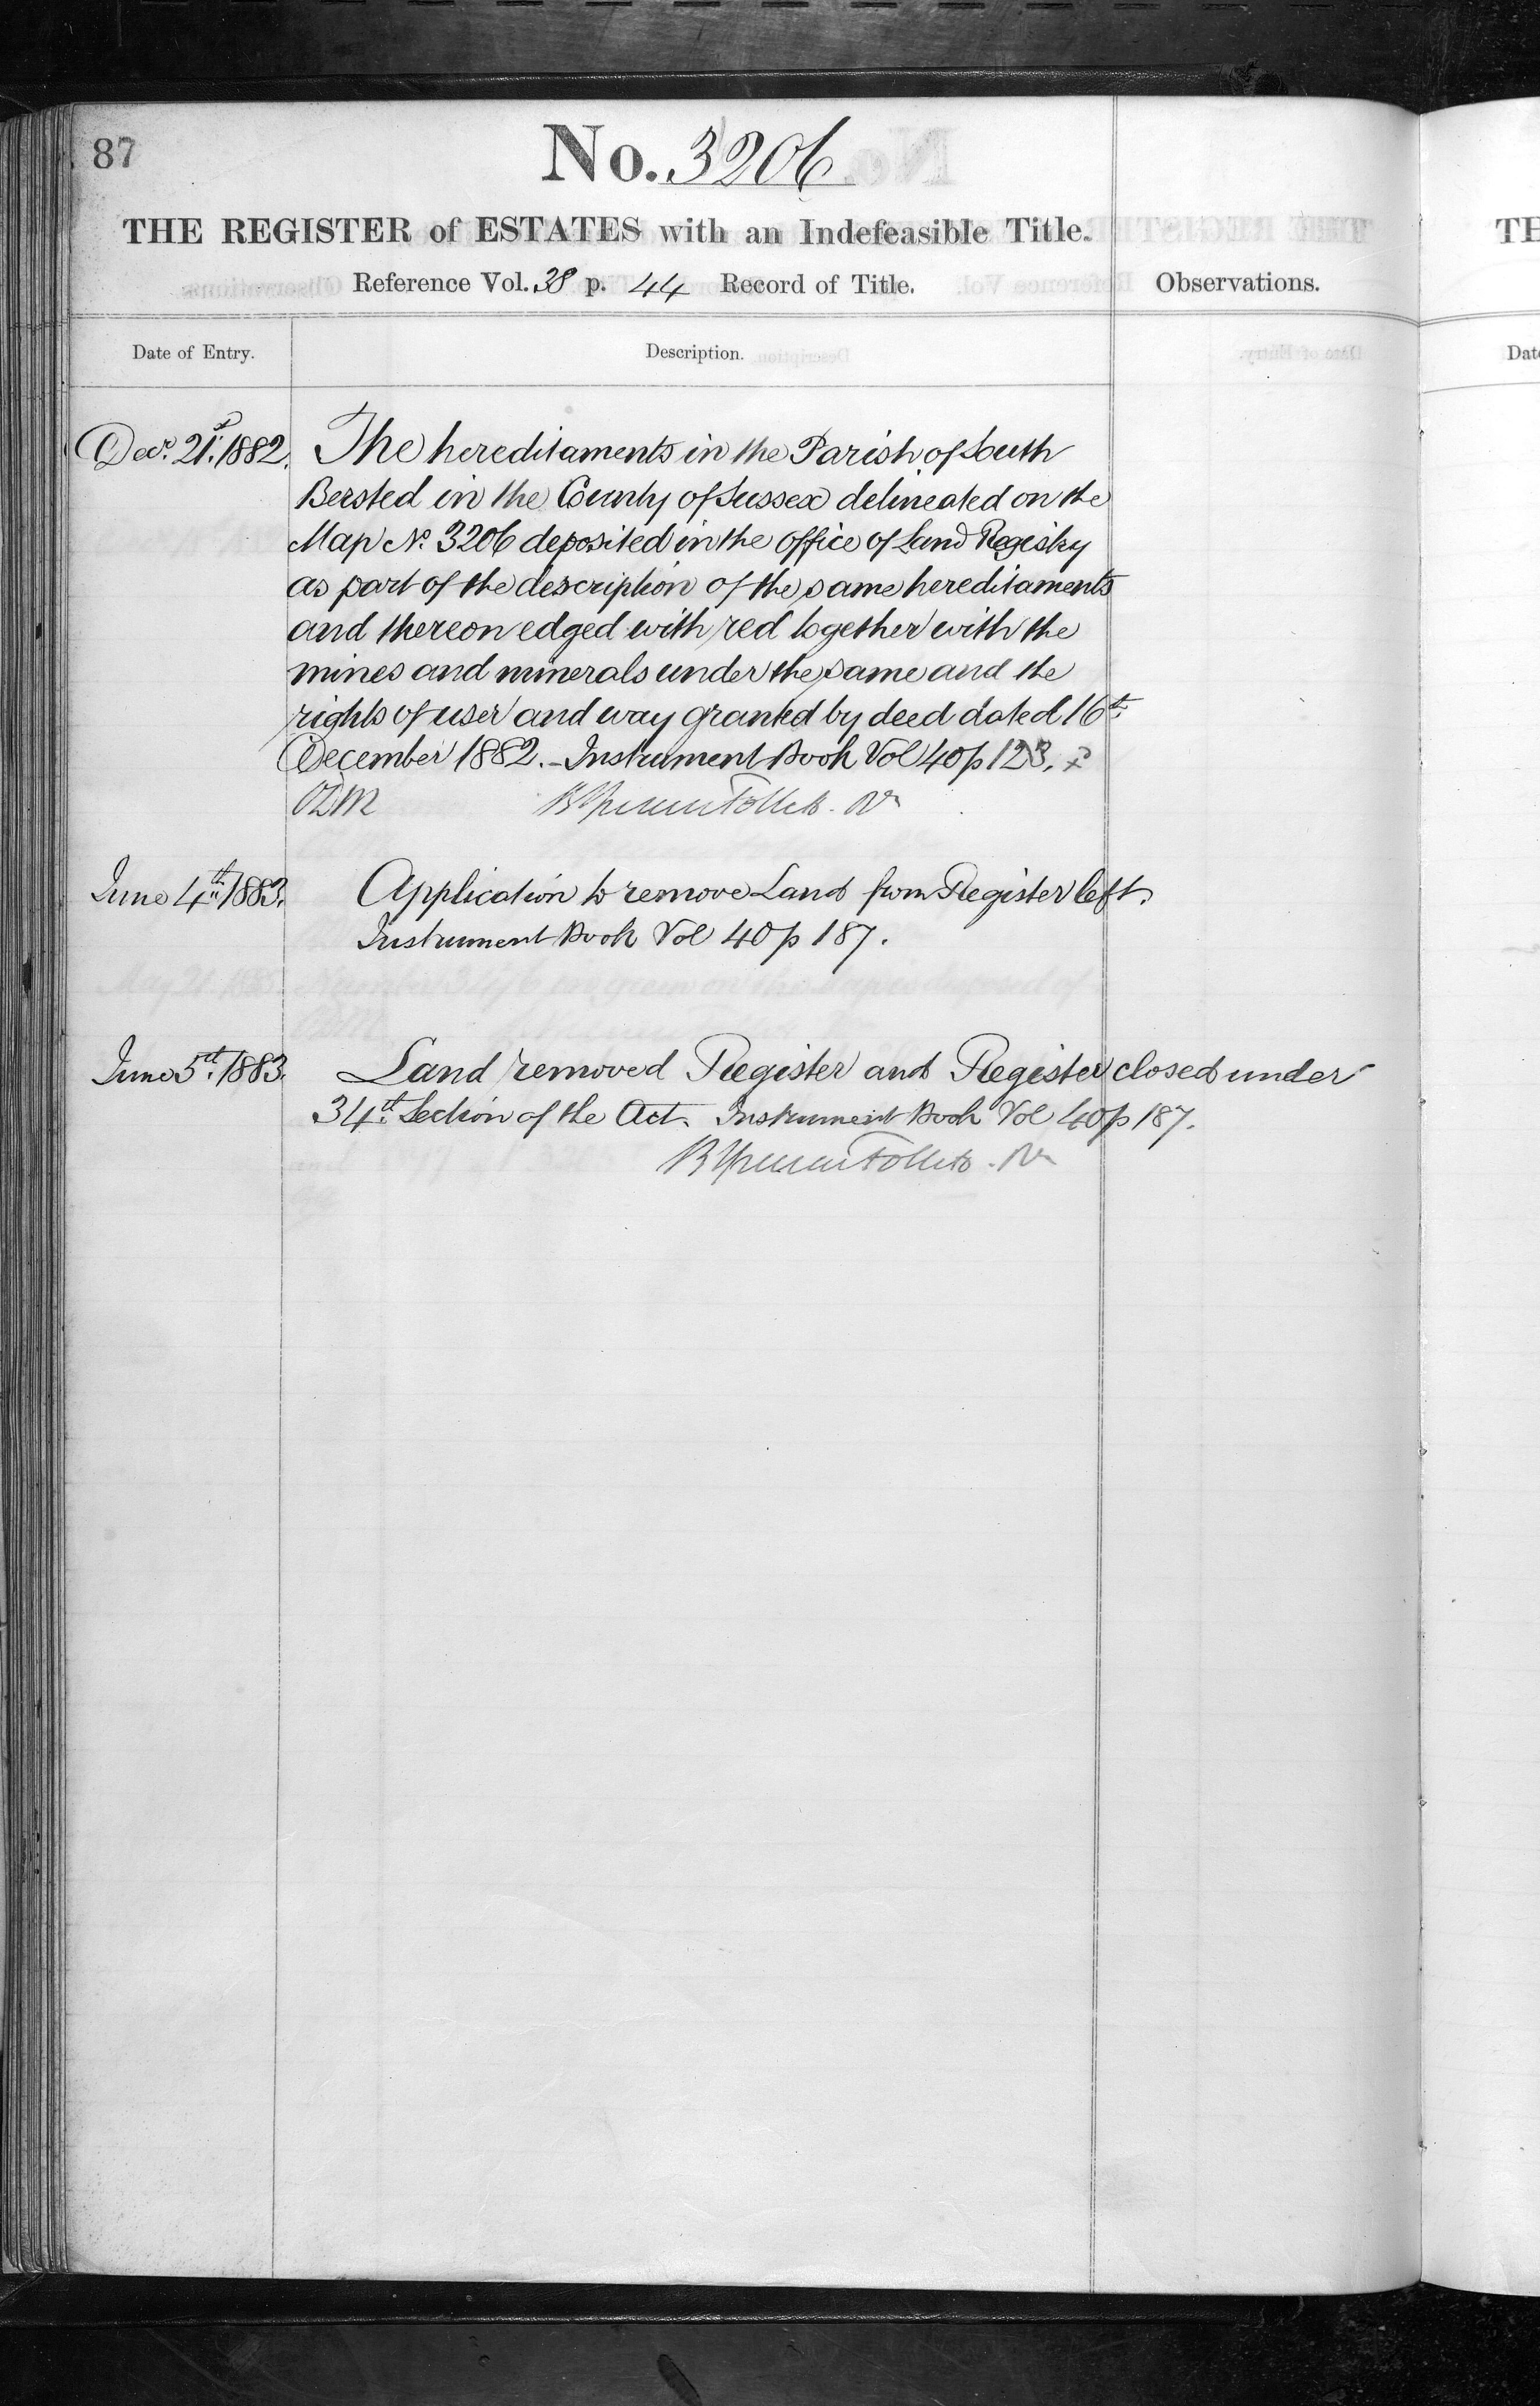 87
No. 3206
THE REGISTER of ESTATES with an Indefeasible Title.
Reference Vol. 38 p. 44 Record of Title.
Observations.
Date of Entry.
Description.
Decr. 21st. 1882. The hereditaments in the Parish of South
Bersted in the County of Sussex delineated on the
Map No. 3206 deposited in the office of Land Registry
as part of the description of the same hereditaments
and thereon edged with red together with the
mines and minerals under the same and the
rights of user and way granted by deed dated 16th.
December 1882. - Instrument Book Vol 40 p 123.
June 4th. 1883. Application to remove Land from Register left.
Instrument Book Vol 40 p 187.
June 5th. 1883. Land removed Register and Register closed under
34th. Section of the Act. Instrument Book Vol 40 p 187.